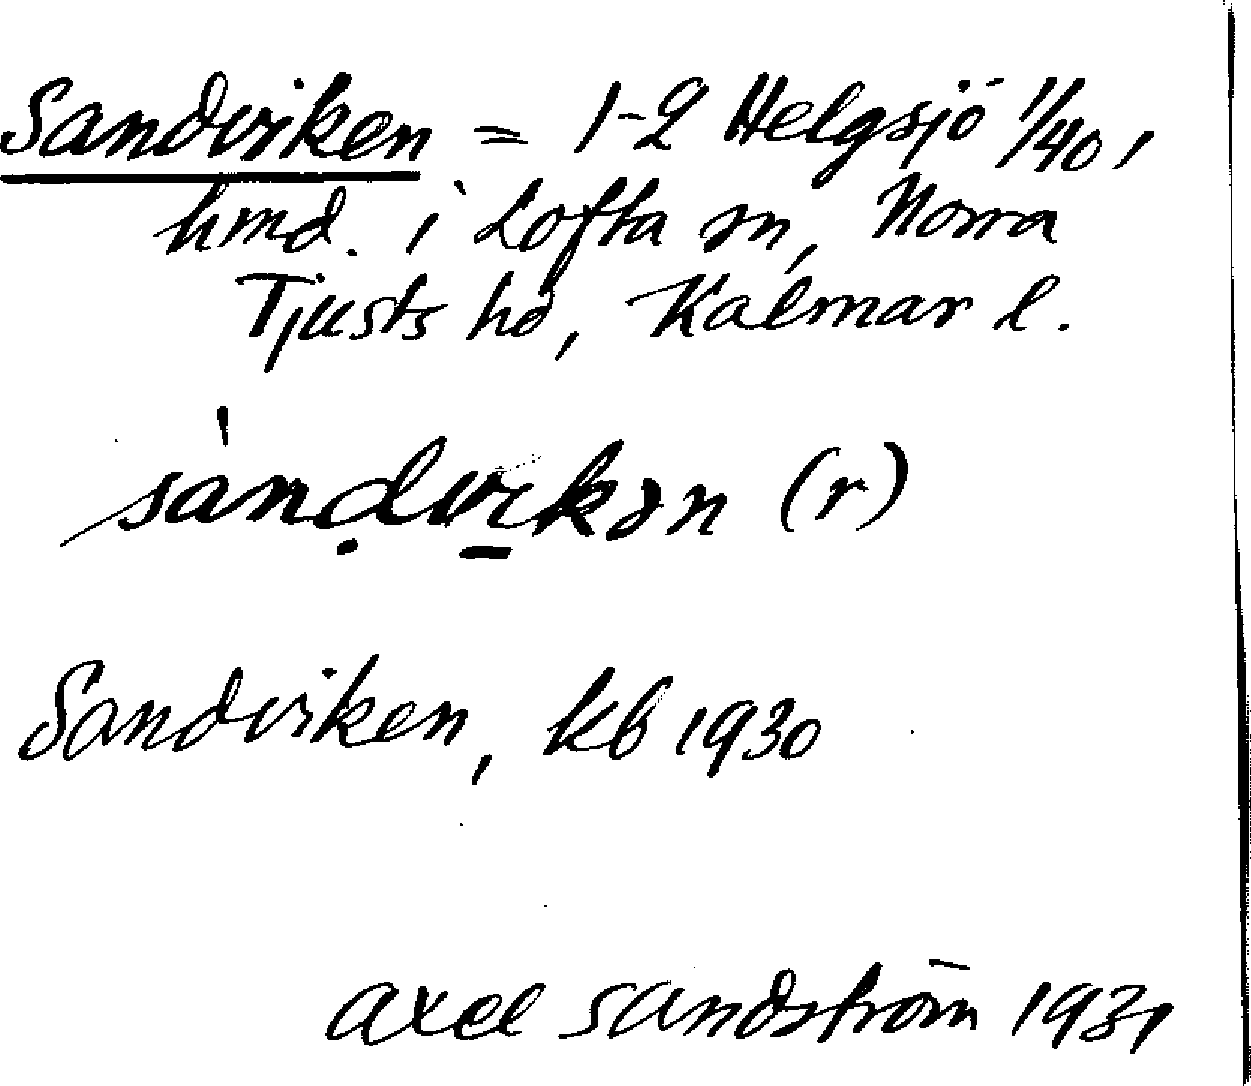 Sandviken = 1-2 Helgsjö 1/40,
hmd. i Lofta sn, Norra
Tjusts hd, Kalmar l.
sánḍvi̱kən (r)
Sandviken, kb 1930
Axel Sandström 1931